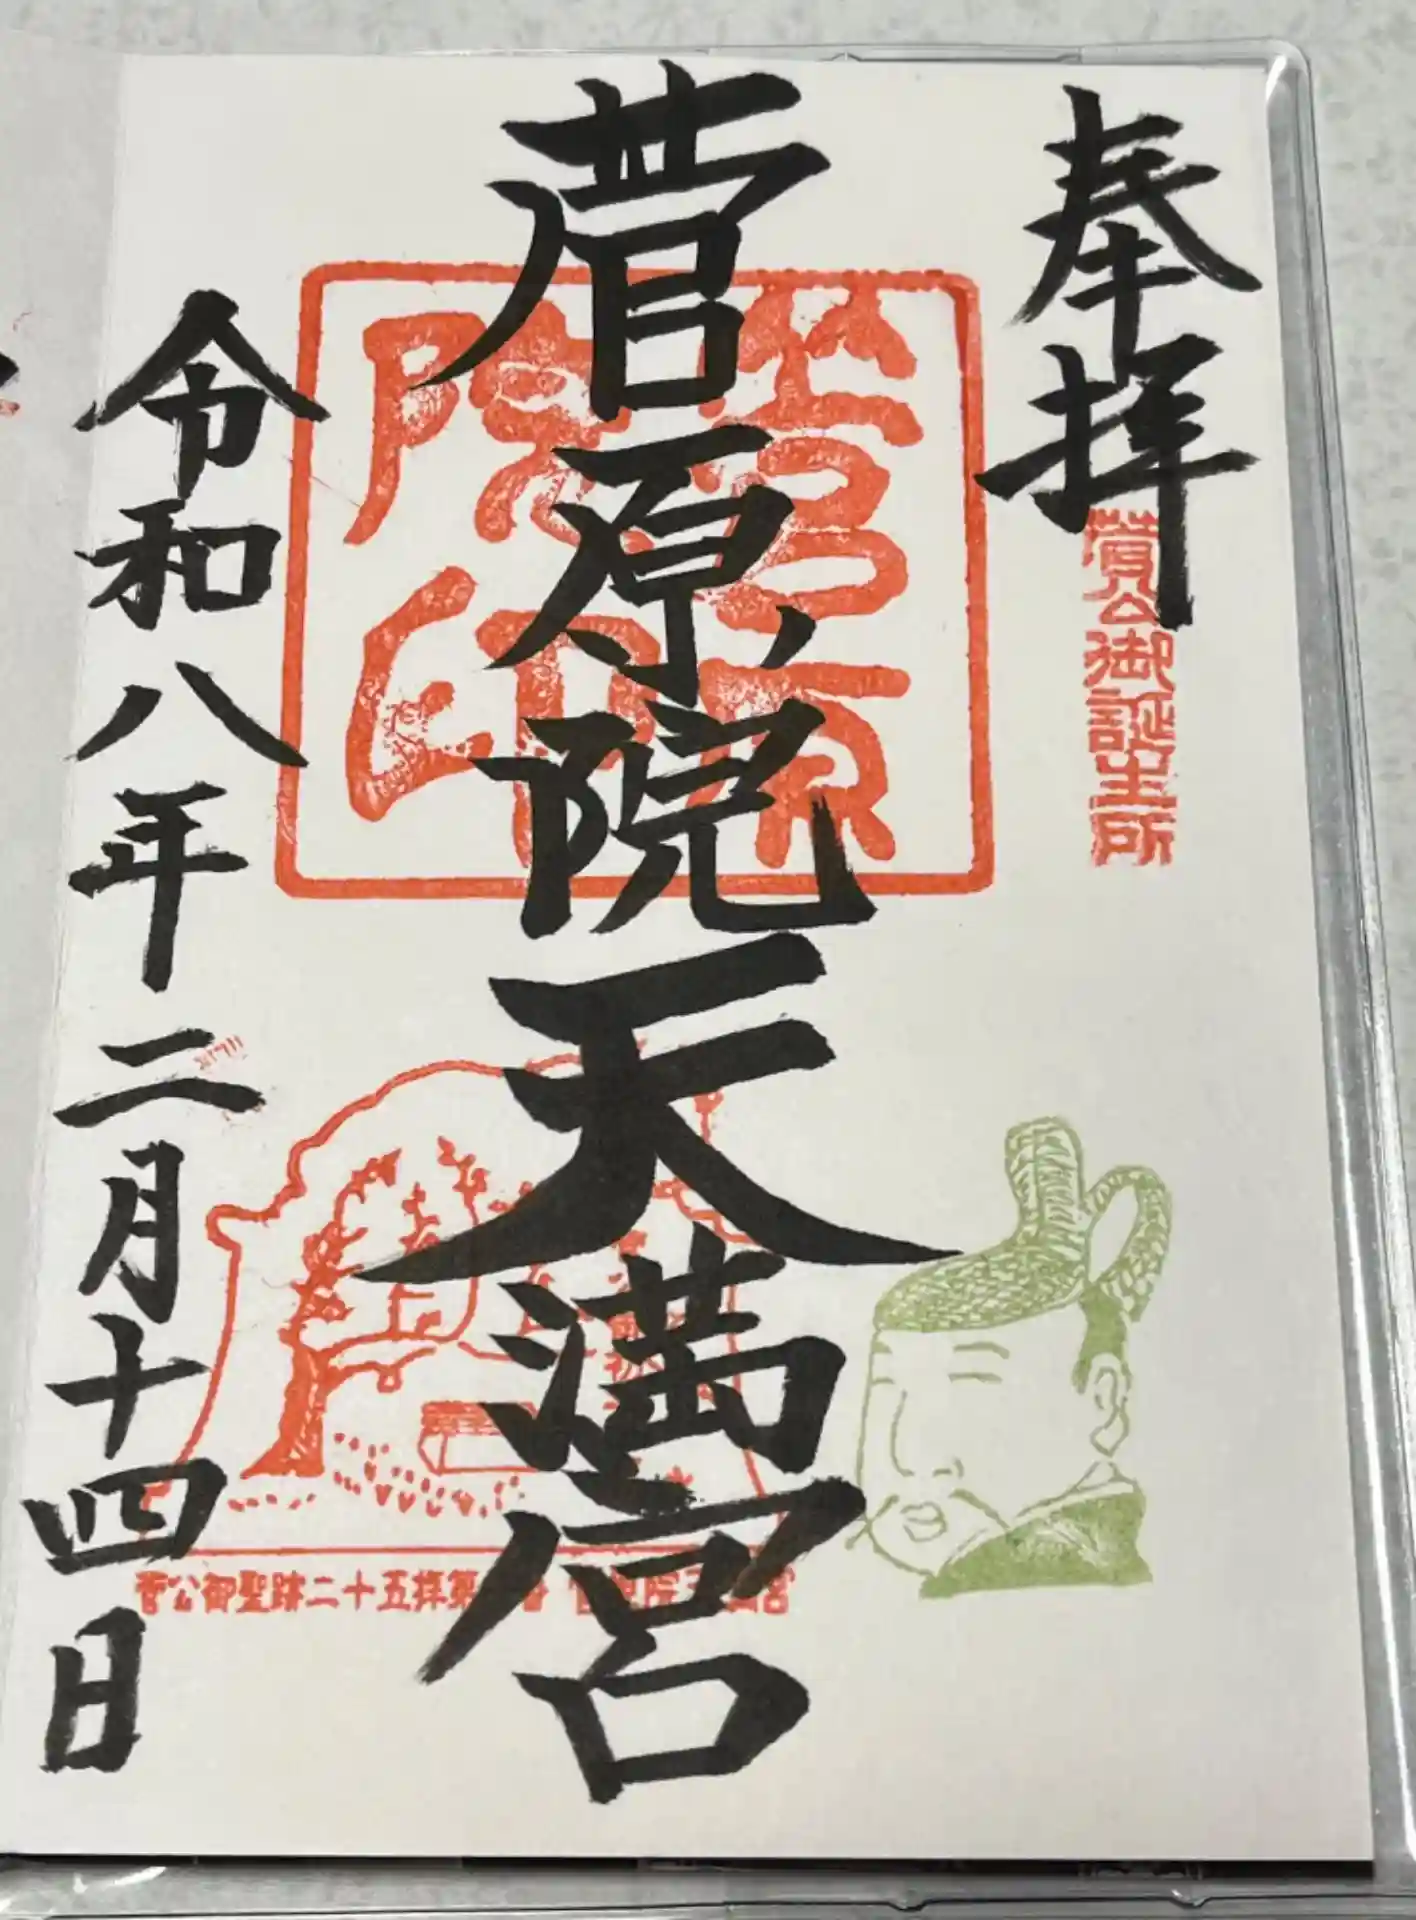 奉拝
菅公御誕生所
菅原院天満宮
菅原院印
令和八年二月十四日
菅公御聖跡二十五拝第